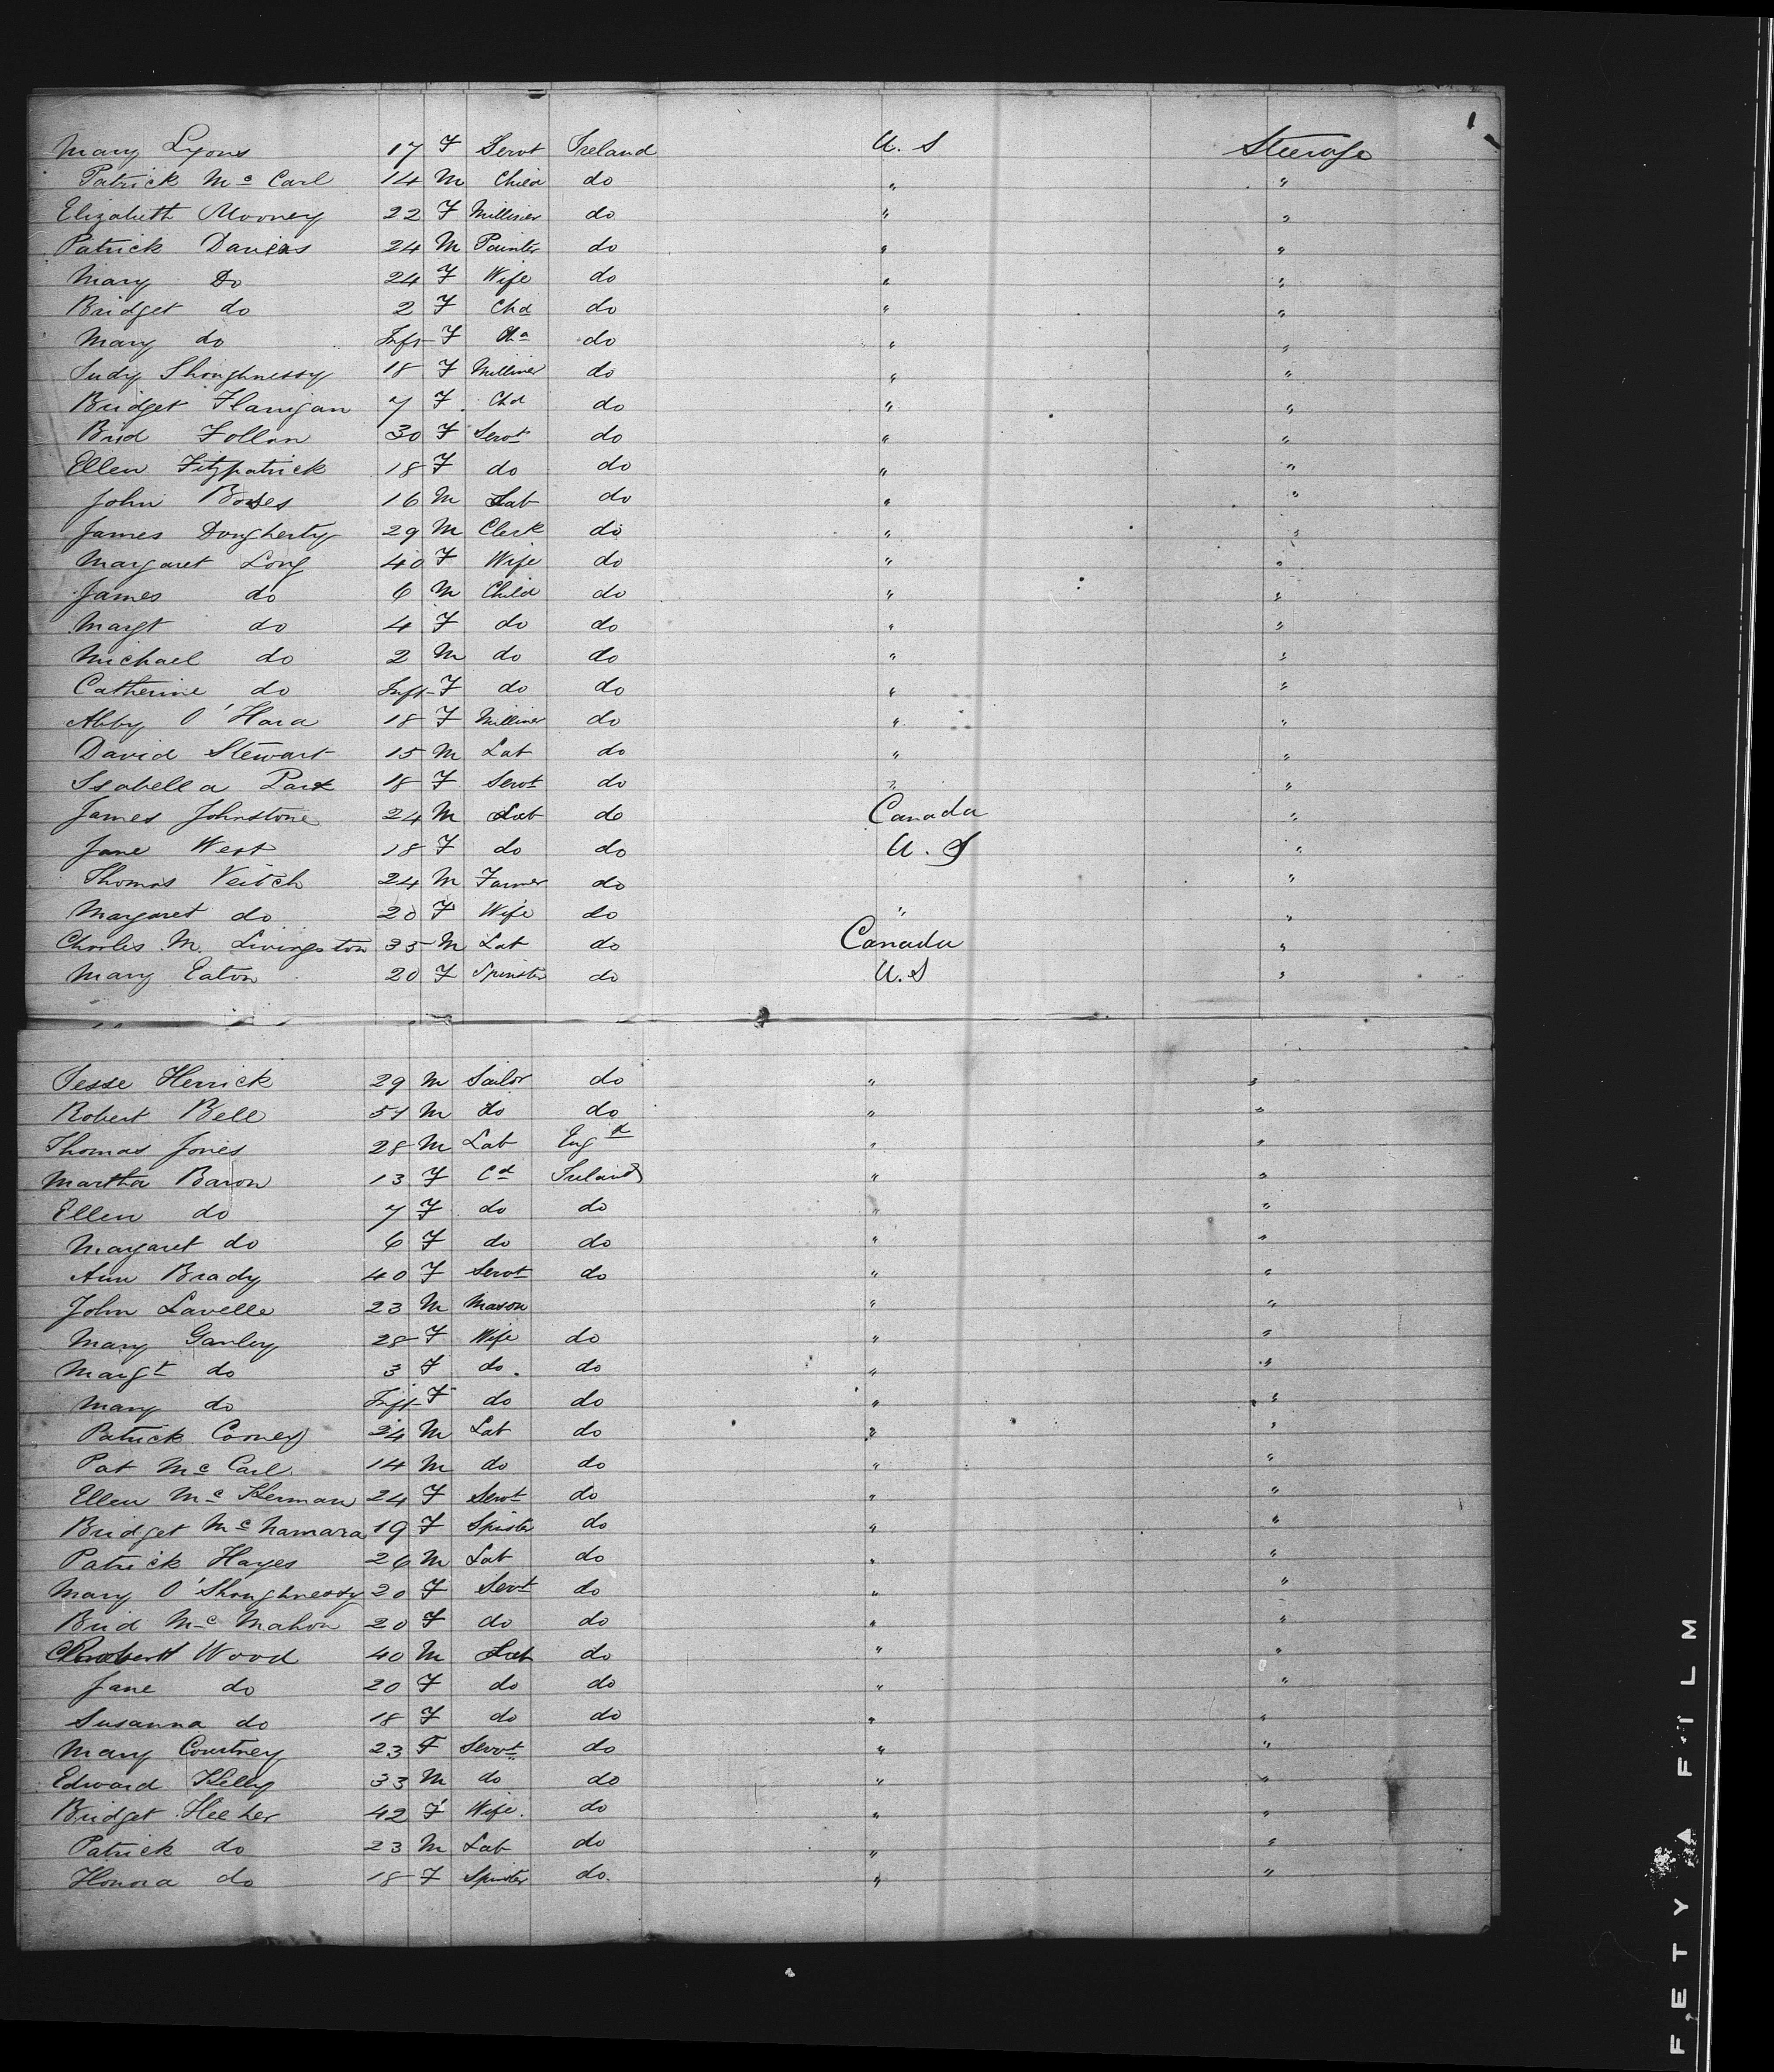 1
Mary Lyons 17 F Servt Ireland U.S Steerage
Patrick Mc Carl 14 M Child do " "
Elizabeth Mooney 22 F Milliner do " "
Patrick Davies 24 M Painter do " "
Mary Do 24 F Wife do " "
Bridget do 2 F Chd do " "
Mary do Inft F Chd do " "
Judy Shoughnessy 18 F Milliner do " "
Bridget Flanigan 7 F Chd do " "
Brid Follan 30 F Servt do " "
Ellen Fitzpatrick 18 F do do " "
John 16 M Lab do " "
James Dougherty 29 M Clerk do " "
Margaret Long 40 F Wife do " "
James do 6 M Child do " "
Margt do 4 F do do " "
Michael do 2 M do do " "
Catherine do Inft F do do " "
Abby O'Hara 18 F Milliner do " "
David Stewart 15 M Lab do " "
Isabella 18 F Servt do " "
James Johnstone 24 M Lab do Canada "
Jane West 18 F do do U.S "
Thomas Veitch 24 M Farmer do "
Margaret do 20 F Wife do " "
Charles M. Livingston 35 M Lab do Canada "
Mary Eaton 20 F Spinster do U.S "
Jesse Herrick 29 M Sailor do " "
Robert Bell 51 M do do " "
Thomas Jones 28 M Lab Engd " "
Martha Baron 13 F Cd Ireland " "
Ellen do 7 F do do " "
Margaret do 6 F do do " "
Ann Brady 40 F Servt do " "
John Lavelle 23 M Mason " "
Mary Ganley 28 F Wife do " "
Margt do 3 F do. do " "
Mary do Inft F do do " "
Patrick 24 M Lab do " "
Pat Mc Carl 14 M do do " "
Ellen Mc Kerman 24 F Servt do " "
Bridget Mc Namara 19 F Spister do " "
Patrick Hayes 26 M Lab do " "
Mary O'Shoughnessy 20 F Servt do " "
Brid Mc Mahon 20 F do do " "
Robert Wood 40 M Lab do " "
Jane do 20 F do do " "
Susanna do 18 F do do " "
Mary Courtney 23 F Servt do " "
Edward Kelly 33 M do do " "
Bridget Heeher 42 F Wife. do " "
Patrick do 23 M Lab do " "
Honora do 18 F Spinster do. " "
FETY FILM